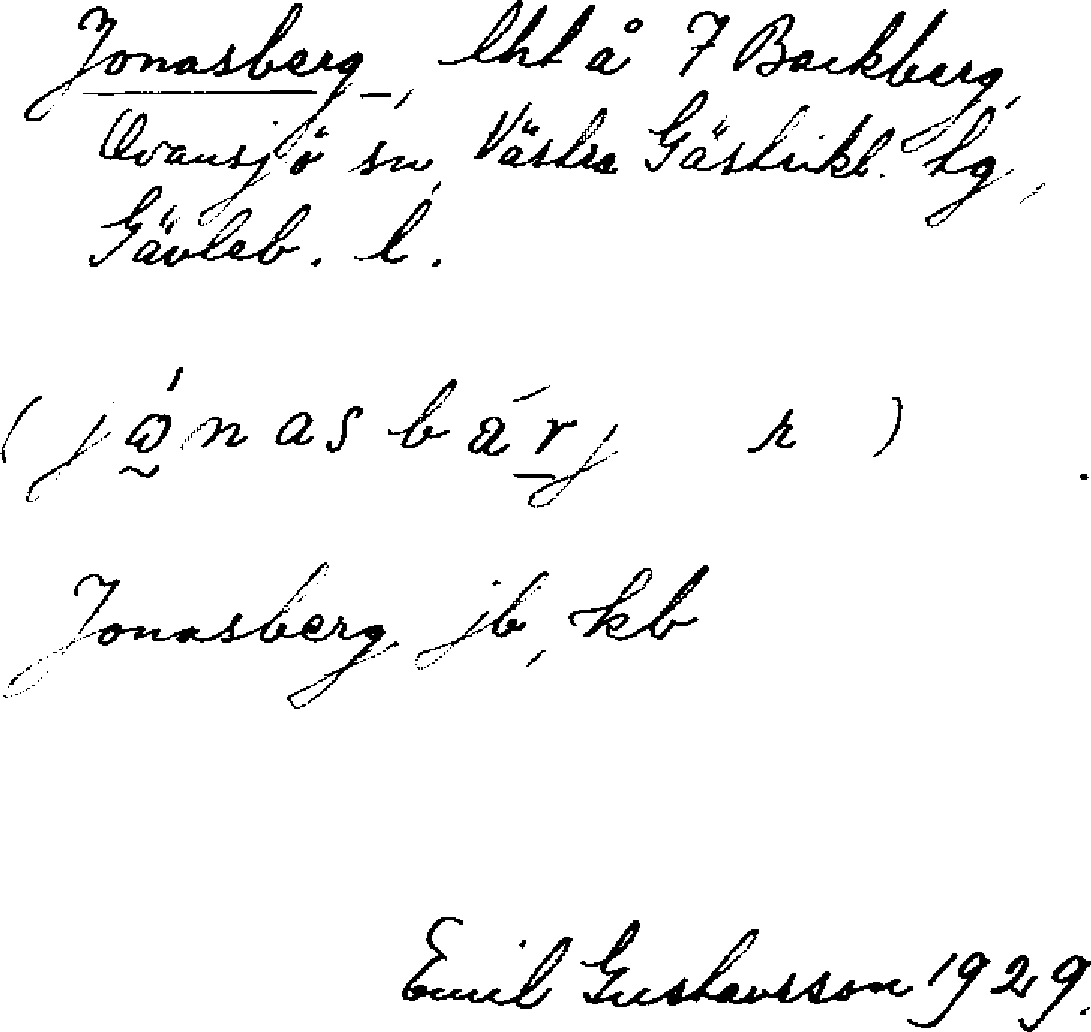 Jonasberg, lht å 7 Backberg,
Ovansjö sn, Västra Gästrikl. tg,
Gävleb. l.
(jώ̰nasbárj r)
Jonasberg jb, kb
Emil Gustavsson 1929.